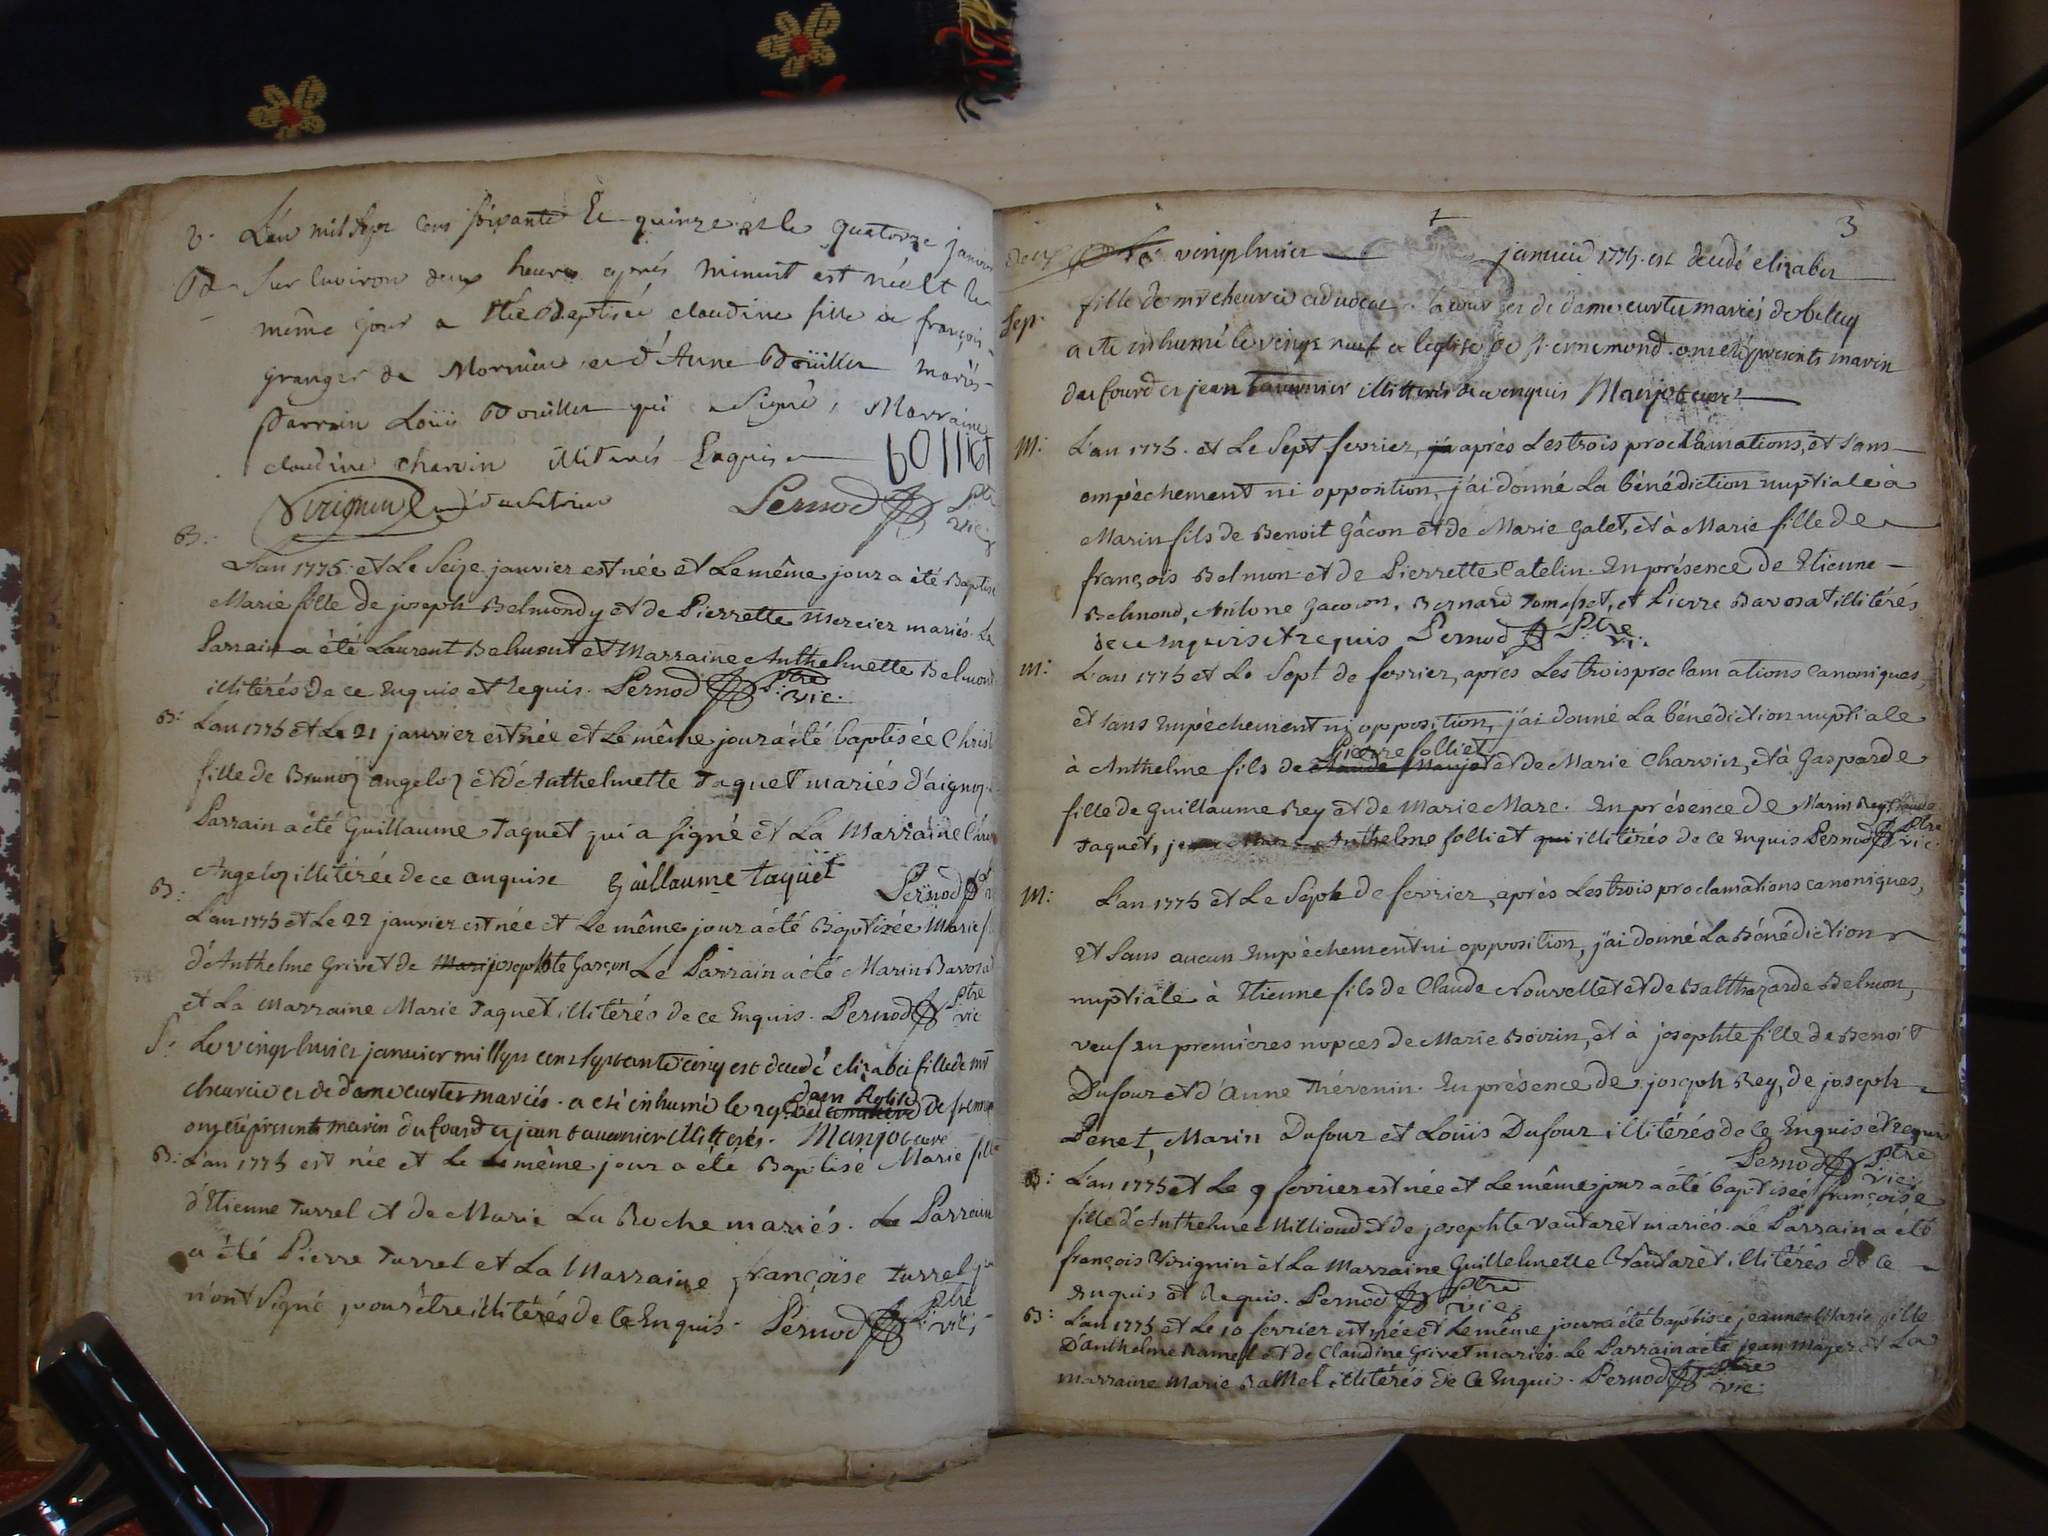 L'an mil sept cens soixante et quinze et le quatorze janvier
sur lenviron deux heures après minuit est née et le
même jour a été Baptisée claudine fille de françois
granger de Mornieu et d'Anne Bouillet mariés
Parrain Louis Bouillet qui a signé, Marraine
claudine charvin illiterés Enquise BOLLIET
Virignin Pernod Ptre
vic.
B: L'an 1775 et Le Seize janvier est née et Le même jour a été Baptisée
Marie fille de joseph Belmondy et de Pierrette Mercier mariés. Le
Parrain a été Laurent Belmont et Marraine Anthelmette Belmond
illitérés de ce Enquis et Requis. Pernod Ptre vic.
B: L'an 1775 et Le 21 janvier est née et Le même jour a été baptisée Christ
fille de Brunoz angeloz et d'Anthelmette Taquet mariés d'aignoz.
Parrain a été Guillaume Taquet qui a signé et La Marraine
Angeloz illitérée de ce anquise Guillaume taquet Pernod
B: L'an 1775 et Le 22 janvier est née et Le même jour a été Baptisée Marie f
d'Anthelme Grivet de Mari josephte Garçon Le Parrain a été Marin Bavosat
et La Marraine Marie Taquet illitérés de ce Enquis. Pernod Ptre vic
S: Le vingt huict janvier mil sept cent septante cinq est decedé elizabet fille de mr
cheurier et de dame curtet mariés. a eté inhumé le 29 dans l'eglise de st ennemond
ont eté presents marin dufourd et jean tavernier illitterés. Manjot curé
B: L'an 1775 est née et Le même jour a été Baptisé Marie fille
d'Etienne Turrel et de Marie La Roche mariés. Le Parrain
a été Pierre Turrel et La Marraine françoise Turrel
n'ont signé pour être illitérés de ce Enquis. Pernod Ptre
vic.
3
Le vingt huict janvied 1775 est decedé elizabet
sep. fille de mr cheurier advocat a la cour et de dame curtet mariés de belley
a eté inhumé le vingt neuf a leglise de st ennemond ont eté presents marin
dufourd et jean tavernier illitterés de ce enquis Manjot curé
M: L'an 1775. et Le Sept fevrier, ja après Les trois proclamations, et sans
empêchement ni opposition, j'ai donné La bénédiction nuptiale à
Marin fils de Benoit Gâcon et de Marie Galet, et à Marie fille de
françois Belmon et de Pierrette Catelin. En présence de Etienne
Belmond, Antone Gacon, Bernard Tomasset, et Pierre Bavosat illitérés
de ce Enquis et requis Pernod Ptre vi.
m: L'an 1775 et Le Sept de fevrier, après Les trois proclamations Canoniques,
et sans Empêchement ni opposition, j'ai donné La bénédiction nuptiale
à Anthelme fils de Claude Manjot Pierre folliet et de Marie Charvin, et à Gasparde
fille de Guillaume Rey et de Marie Marc. En présence de Marin Rey, Claude
Taquet, jean Marc Anthelme folliet qui illitérés de ce Enquis Pernod Ptre vic.
m: L'an 1775 et Le Sept de fevrier, après Les trois proclamations canoniques,
et sans aucun Empêchement ni opposition, j'ai donné La Bénédiction
nuptiale à Etienne fils de Claude Nouvellet et de Balthazarde Belmon,
veuf en premières nopces de Marie Boirin, et à josephte fille de Benoit
Dufour et d'Anne Thévenin. En présence de joseph Rey, de joseph
Penet, Marin Dufour et Louis Dufour illitérés de ce Enquis et requis
Pernod Ptre vic.
B: L'an 1775 et Le 9 fevrier est née et Le même jour a été baptisée françoise
fille d'Anthelme Millioud et de josephte vautaret mariés. Le Parrain a été
françois Virignin et La Marraine Guillelmette Vautaret illitérés de ce
Enquis et Requis. Pernod Ptre vic.
B: L'an 1775 et Le 10 fevrier est née et Le même jour a été baptisée jeanne Marie fille
D'anthelme Ramel et de Claudine Grivet mariés. Le Parrain a été jean Majer et La
marraine Marie Ramel illitérés de ce Enquis. Pernod Ptre vic.